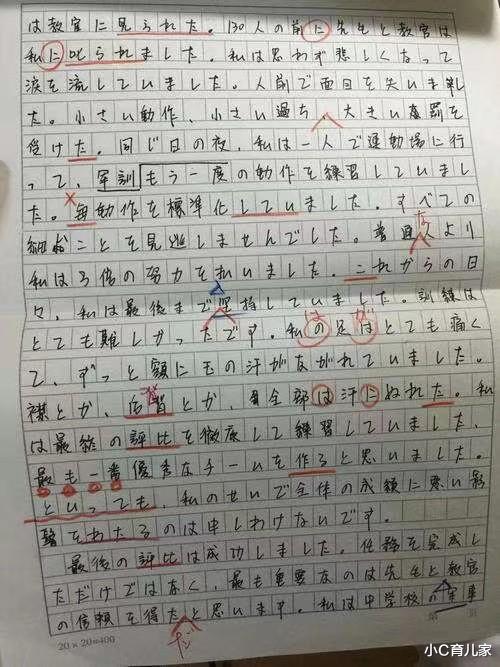 は教官に見られた。130人の前に先生と教官は
私に叱られました。私は思わず悲しくなって
涙を流していました。人前で面目を失いまし
た。小さい動作、小さい過ち、大きい処罰を
受けた。同じ日の夜、私は一人で運動場に行
って、軍訓もう一度の動作を練習していまし
た。毎動作を標準化していました。すべての
細かことを見逃しませんでした。普通人より
私は3倍の努力を払いました。これからの日
々、私は最後まで堅持していました。訓練は
とても難しかったです。私の足はとても痛く
て、ずっと額に玉の汗がながれていました。
襟とか、后背とか、全部は汗にぬれた。私
は最終の評比を徹底して練習していました、
最も一番優秀なチームを作ると思いました。
といっても、私のせいで全体の成績に悪い影
響をわたるのは申しわけないです。
最後の評比は成功しました。任務を完成し
ただけではなく、最も重要なのは先生と教官
の信頼を得たと思います。私は中学校の軍事
た
は
が
だ
20×20=400
小C育儿家